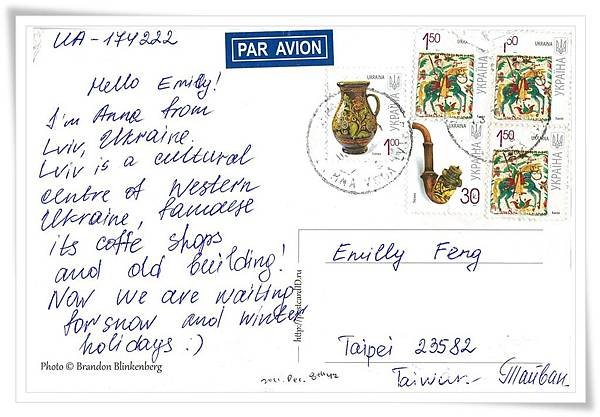 UA-174222
PAR AVION
Hello Emilly!
I'm Anna from
Lviv, Ukraine.
Lviv is a cultural
centre of Western
Ukraine, famouse
its coffe shops
and old building!
Now we are waiting
for snow and winter
holidays :)
Photo © Brandon Blinkenberg
http://postcardID.ru
УКРАЇНА
UKRAINA
1.00
1.50
UKRAINA
УКРАЇНА
1.50
UKRAINA
УКРАЇНА
30
1.50
UKRAINA
УКРАЇНА
Emilly Feng
Taipei 23582
Тайван